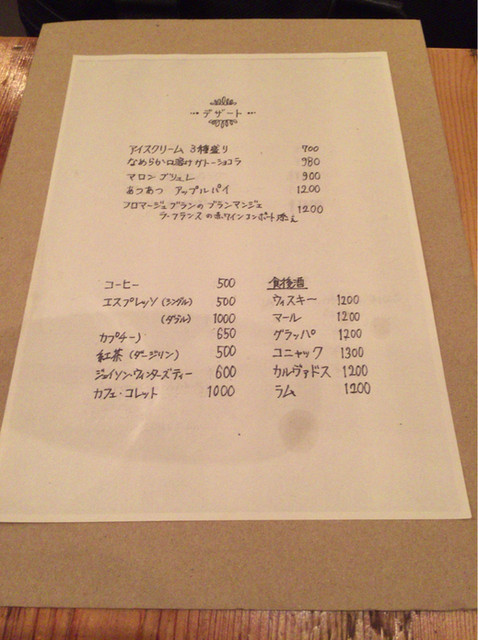 デザート
アイスクリーム 3種盛り 700
なめらか口溶けガトーショコラ 980
マロン ブリュレ 900
あつあつ アップルパイ 1200
フロマージュブランのブランマンジェ 1200
ラ・フランスの赤ワインコンポート添え
コーヒー 500
エスプレッソ (シングル) 500
(ダブル) 1000
カプチーノ 650
紅茶 (ダージリン) 500
ジェイソン・ウィンターズティー 600
カフェ・コレット 1000
食後酒
ウィスキー 1200
マール 1200
グラッパ 1200
コニャック 1300
カルヴァドス 1200
ラム 1200